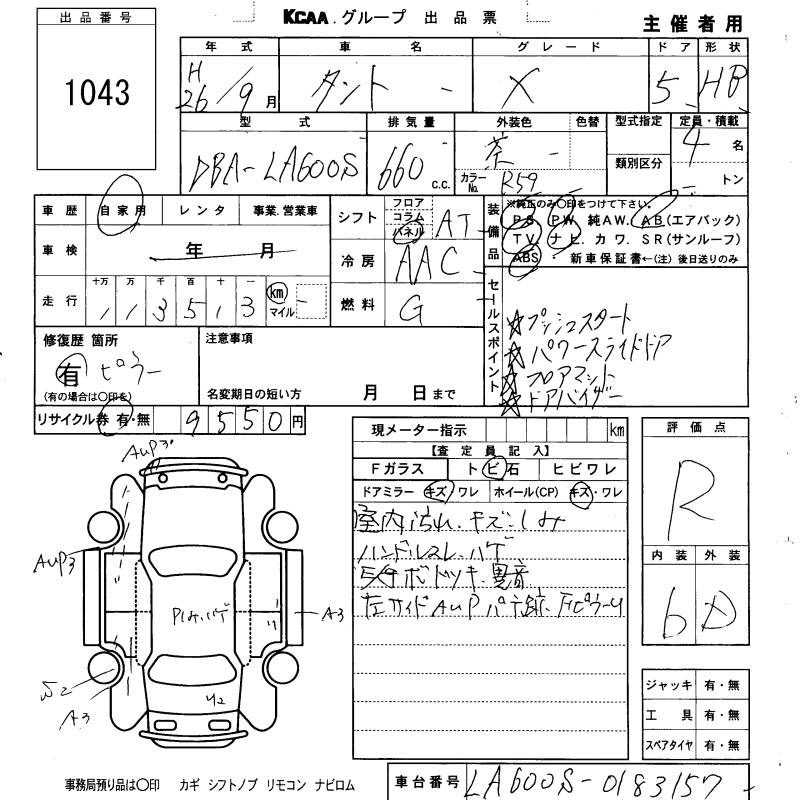 出品番号
1043
KCAA.グループ 出品票
主催者用
年式 車名 グレード ドア 形状
H 26/9月 タント - X 5 HB
型式 排気量 外装色 色替 型式指定 定員・積載
DBA-LA600S 660 c.c. 茶 - カラーNo. R59 類別区分 4名 トン
車歴 自家用 レンタ 事業.営業車
車検 年 月
走行 十万 万 千 百 十 一
1 1 3 5 1 3 km マイル
シフト フロア コラム パネル AT
冷房 AAC
燃料 G
装備品 ※純正のみ○印をつけて下さい。
P S. P W. 純A W. A B(エアバック)
T V. ナビ. カワ. S R(サンルーフ)
ABS 新車保証書←(注)後日送りのみ
セールスポイント
☆プッシュスタート
☆パワースライドドア
☆フロアマット
☆ドアバイザー
修復歴 箇所
有 ピラー
(有の場合は○印を)
注意事項
名変期日の短い方 月 日まで
リサイクル券 有・無 9550円
現メーター指示 km
【査定員記入】
Fガラス トビ石 ヒビワレ
ドアミラー キズ/ワレ ホイール(CP) キズ・ワレ
室内汚れ.キズ.シミ
ハンドルスレ.ハゲ
ボドツキ.異音
左サイドAUP パテ跡.
評価点
R
内装 外装
6 D
ジャッキ 有・無
工具 有・無
スペアタイヤ 有・無
AUP3
AUP3
A3
S2
A3
U2
事務局預り品は○印 カギ シフトノブ リモコン ナビロム
車台番号 LA600S-0183157